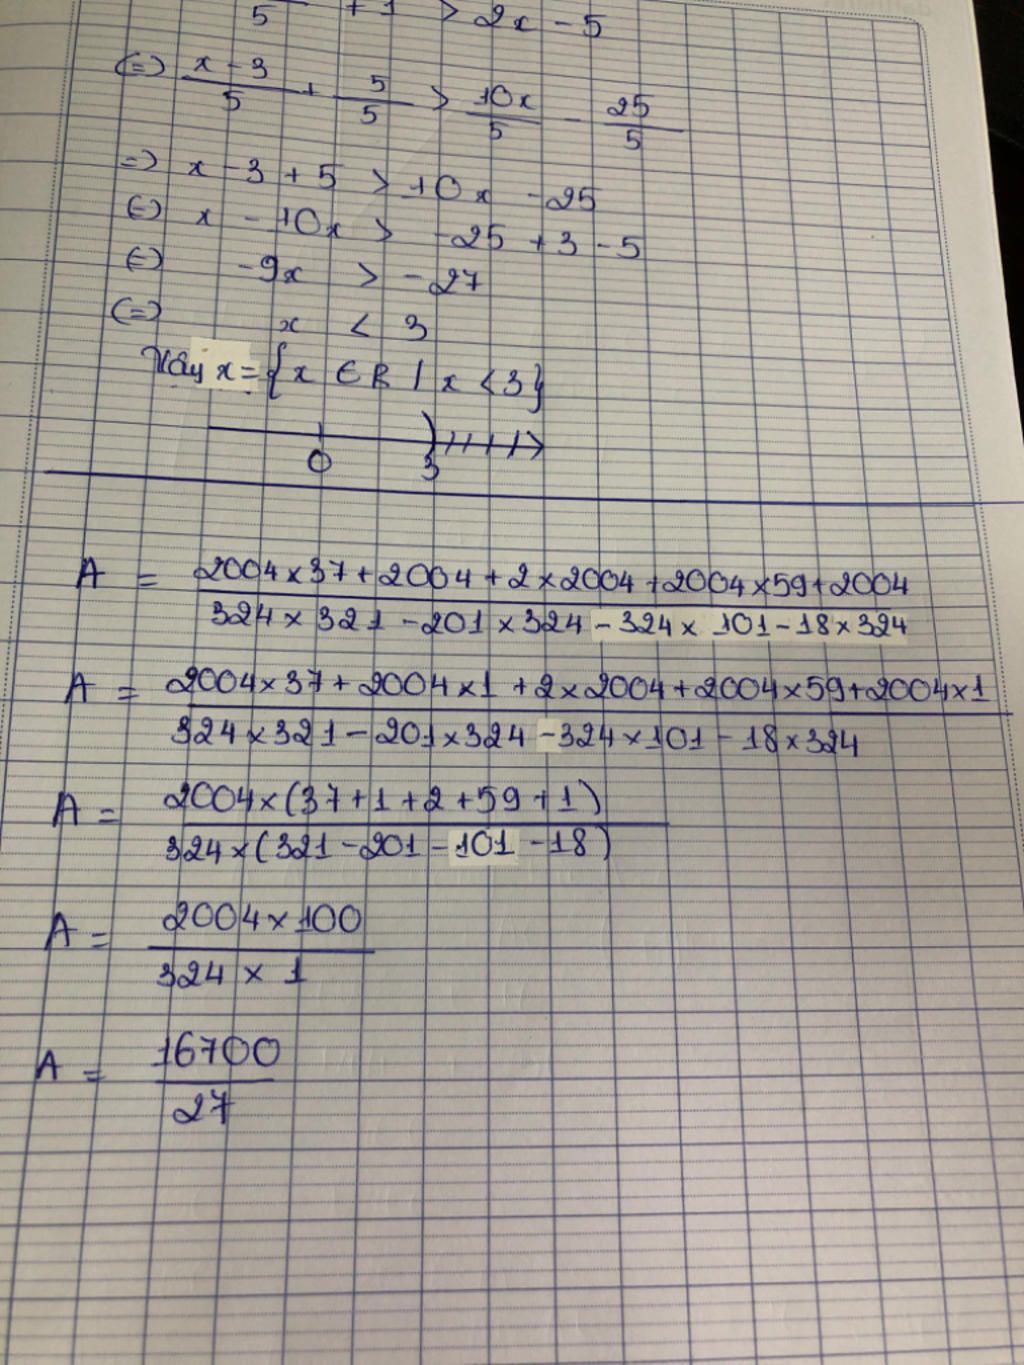 5 + 1 > 2x - 5
(=) x - 3 / 5 + 5 / 5 > 10x / 5 - 25 / 5
=) x - 3 + 5 > 10x - 25
(=) x - 10x > -25 + 3 - 5
(=) -9x > -27
(=) x < 3
Vậy x = {x ∈ R | x < 3}
0 3
A = 2004 x 37 + 2004 + 2 x 2004 + 2004 x 59 + 2004
324 x 321 - 201 x 324 - 324 x 101 - 18 x 324
A = 2004 x 37 + 2004 x 1 + 2 x 2004 + 2004 x 59 + 2004 x 1
324 x 321 - 201 x 324 - 324 x 101 - 18 x 324
A = 2004 x (37 + 1 + 2 + 59 + 1)
324 x (321 - 201 - 101 - 18)
A = 2004 x 100
324 x 1
A = 16700
27